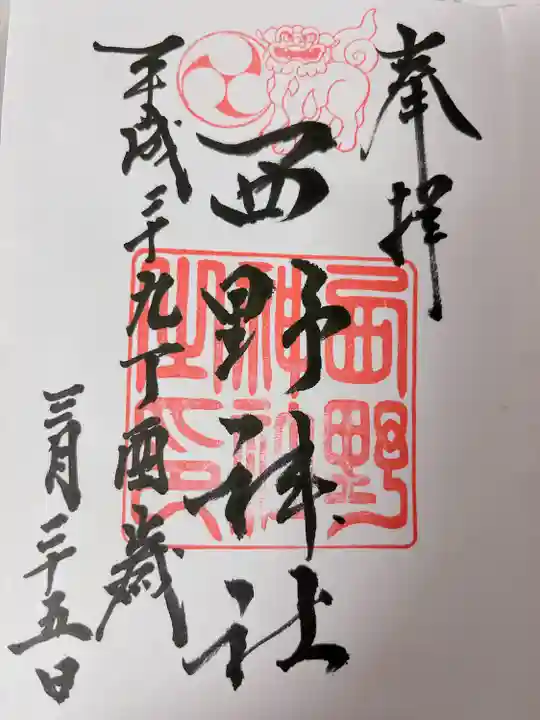 奉拝
西野神社
平成二十九丁酉歳
三月二十五日
西野
神社
之印